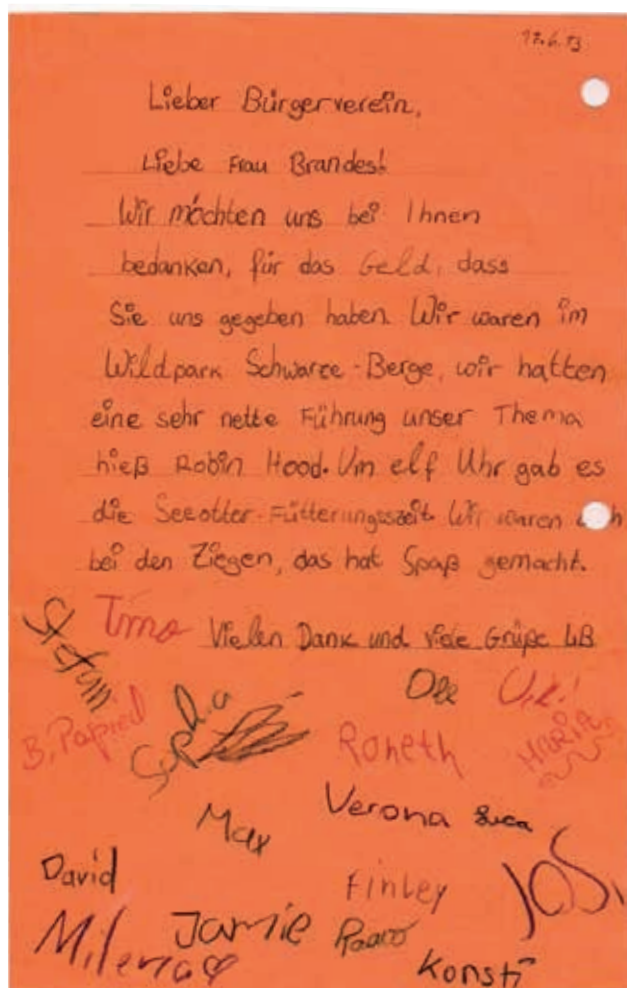 17.6.13
Lieber Bürgerverein,
Liebe Frau Brandes!
Wir möchten uns bei Ihnen
bedanken, für das Geld, dass
Sie uns gegeben haben. Wir waren im
Wildpark Schwarze-Berge, wir hatten
eine sehr nette Führung unser Thema
hieß Robin Hood. Um elf Uhr gab es
die Seeotter-Fütterungszeit. Wir waren
bei den Ziegen, das hat Spaß gemacht.
Timo Vielen Dank und viele Grüße 4B
Stefan
Ole
Sophia
Maria
Verona Luca
Max
David
Finley
Josi
Milena Jamie
Konsti